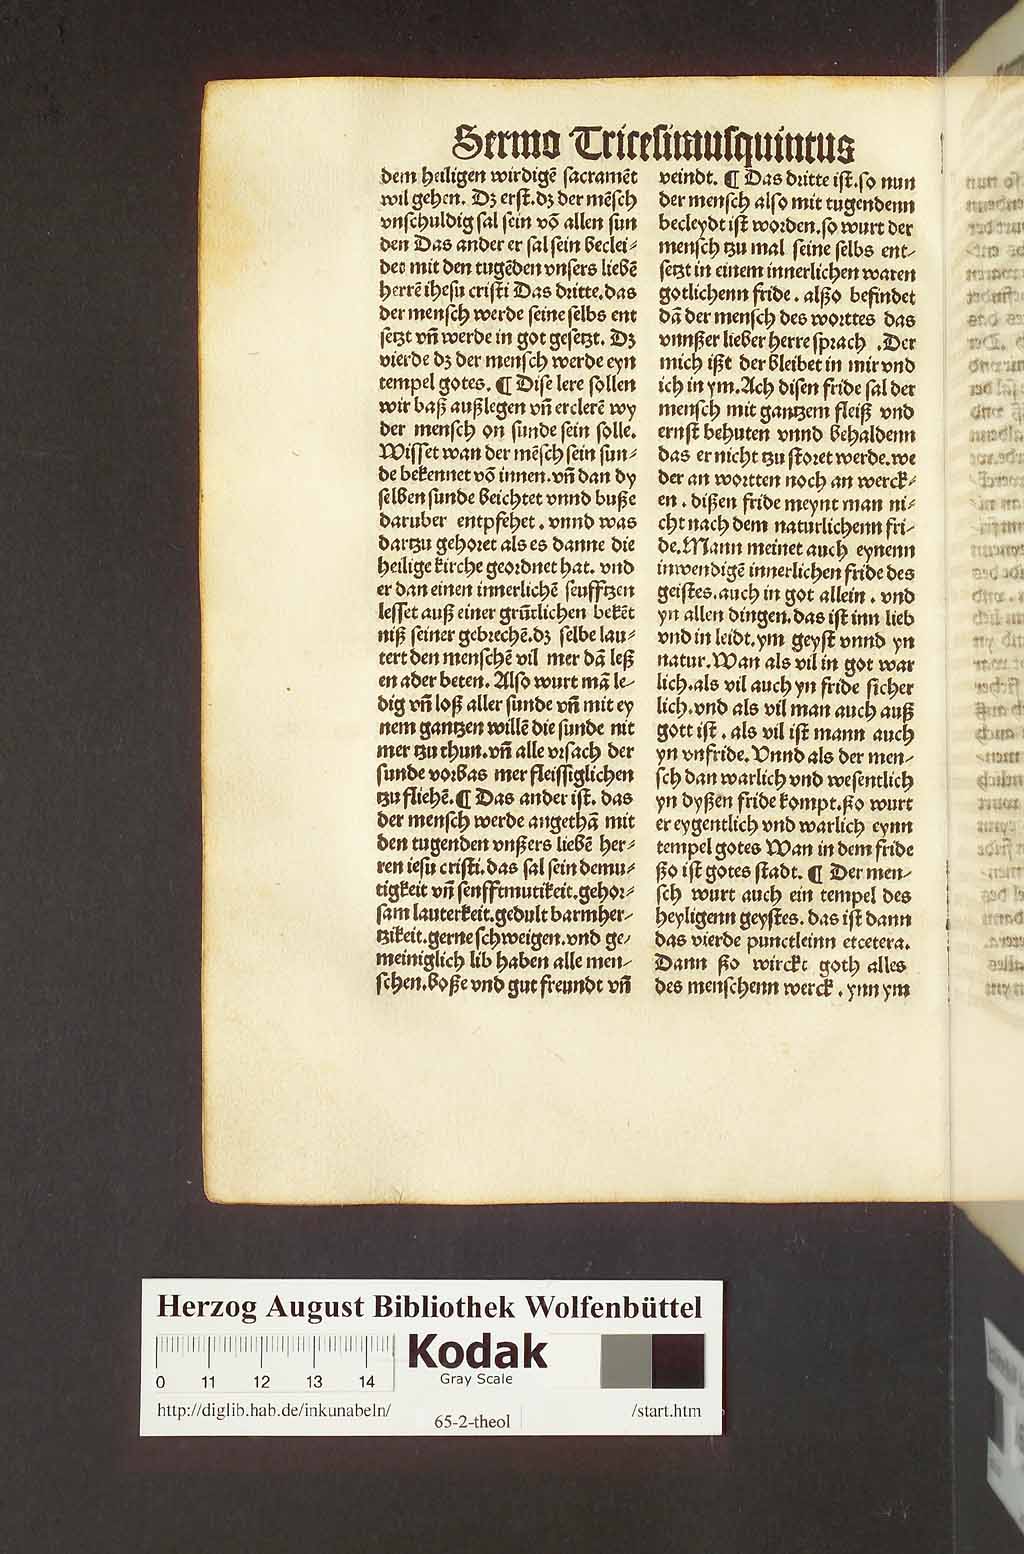 Sermo Tricesimusquintus
dem heiligen wirdigē sacramēt
wil gehen. Dꝫ erst. dꝫ der mēsch
vnschuldig sal sein vō allen sun
den Das ander er sal sein beclei⸗
det mit den tugēden vnsers liebē
herrē ihesu cristi Das dritte. das
der mensch werde seine selbs ent
setzt vn̄ werde in got gesetzt. Dꝫ
vierde dꝫ der mensch werde eyn
tempel gotes. ¶ Dise lere sollen
wir baß außlegen vn̄ erclerē wy
der mensch on sunde sein solle.
Wisset wan der mēsch sein sun⸗
de bekennet vō innen. vn̄ dan dy
selben sunde beichtet vnnd buße
daruber entpfehet. vnnd was
dartzu gehoret als es danne die
heilige kirche geordnet hat. vnd
er dan einen innerlichē seufftzen
lesset auß einer grūtlichen bekēt
niß seiner gebrechē. dꝫ selbe lau⸗
tert den menschē vil mer dā leß
en ader beten. Also wurt mā le⸗
dig vn̄ loß aller sunde vn̄ mit ey
nem gantzen willē die sunde nit
mer tzu thun. vn̄ alle vrsach der
sunde vorbas mer fleissiglichen
tzu fliehē. ¶ Das ander ist. das
der mensch werde angethā mit
den tugenden vnßers liebē her⸗
ren iesu cristi. das sal sein demu⸗
tigkeit vn̄ senfftmutikeit. gehor⸗
sam lauterkeit. gedult barmher⸗
tzikeit. gerne schweigen. vnd ge⸗
meiniglich lib haben alle men⸗
schen. boße vnd gut freundt vn̄
veindt. ¶ Das dritte ist. so nun
der mensch also mit tugendenn
becleydt ist worden. so wurt der
mensch tzu mal seine selbs ent⸗
setzt in einem innerlichen waren
gotlichenn fride. alßo befindet
dā der mensch des worttes das
vnnßer lieber herre sprach .Der
mich ißt der bleibet in mir vnd
ich in ym. Ach disen fride sal der
mensch mit gantzem fleiß vnd
ernst behuten vnnd behaldenn
das er nicht tzu storet werde. we
der an wortten noch an werck⸗
en. dißen fride meynt man ni⸗
cht nach dem naturlichenn fri⸗
de. Mann meinet auch eynenn
inwendigē innerlichen fride des
geistes. auch in got allein. vnd
yn allen dingen. das ist inn lieb
vnd in leidt. ym geyst vnnd yn
natur. Wan als vil in got war
lich. als vil auch yn fride sicher
lich. vnd als vil man auch auß
gott ist. als vil ist mann auch
yn vnfride. Vnnd als der men⸗
sch dan warlich vnd wesentlich
yn dyßen fride kompt. ßo wurt
er eygentlich vnd warlich eynn
tempel gotes Wan in dem fride
ßo ist gotes stadt. ¶ Der men⸗
sch wurt auch ein tempel des
heyligenn geystes. das ist dann
das vierde punctleinn etcetera.
Dann ßo wirckt goth alles
des menschenn werck. ynn ym
Herzog August Bibliothek Wolfenbüttel
Kodak
Gray Scale
0 11 12 13 14
http://diglib.hab.de/inkunabeln/
65-2-theol
/start.htm